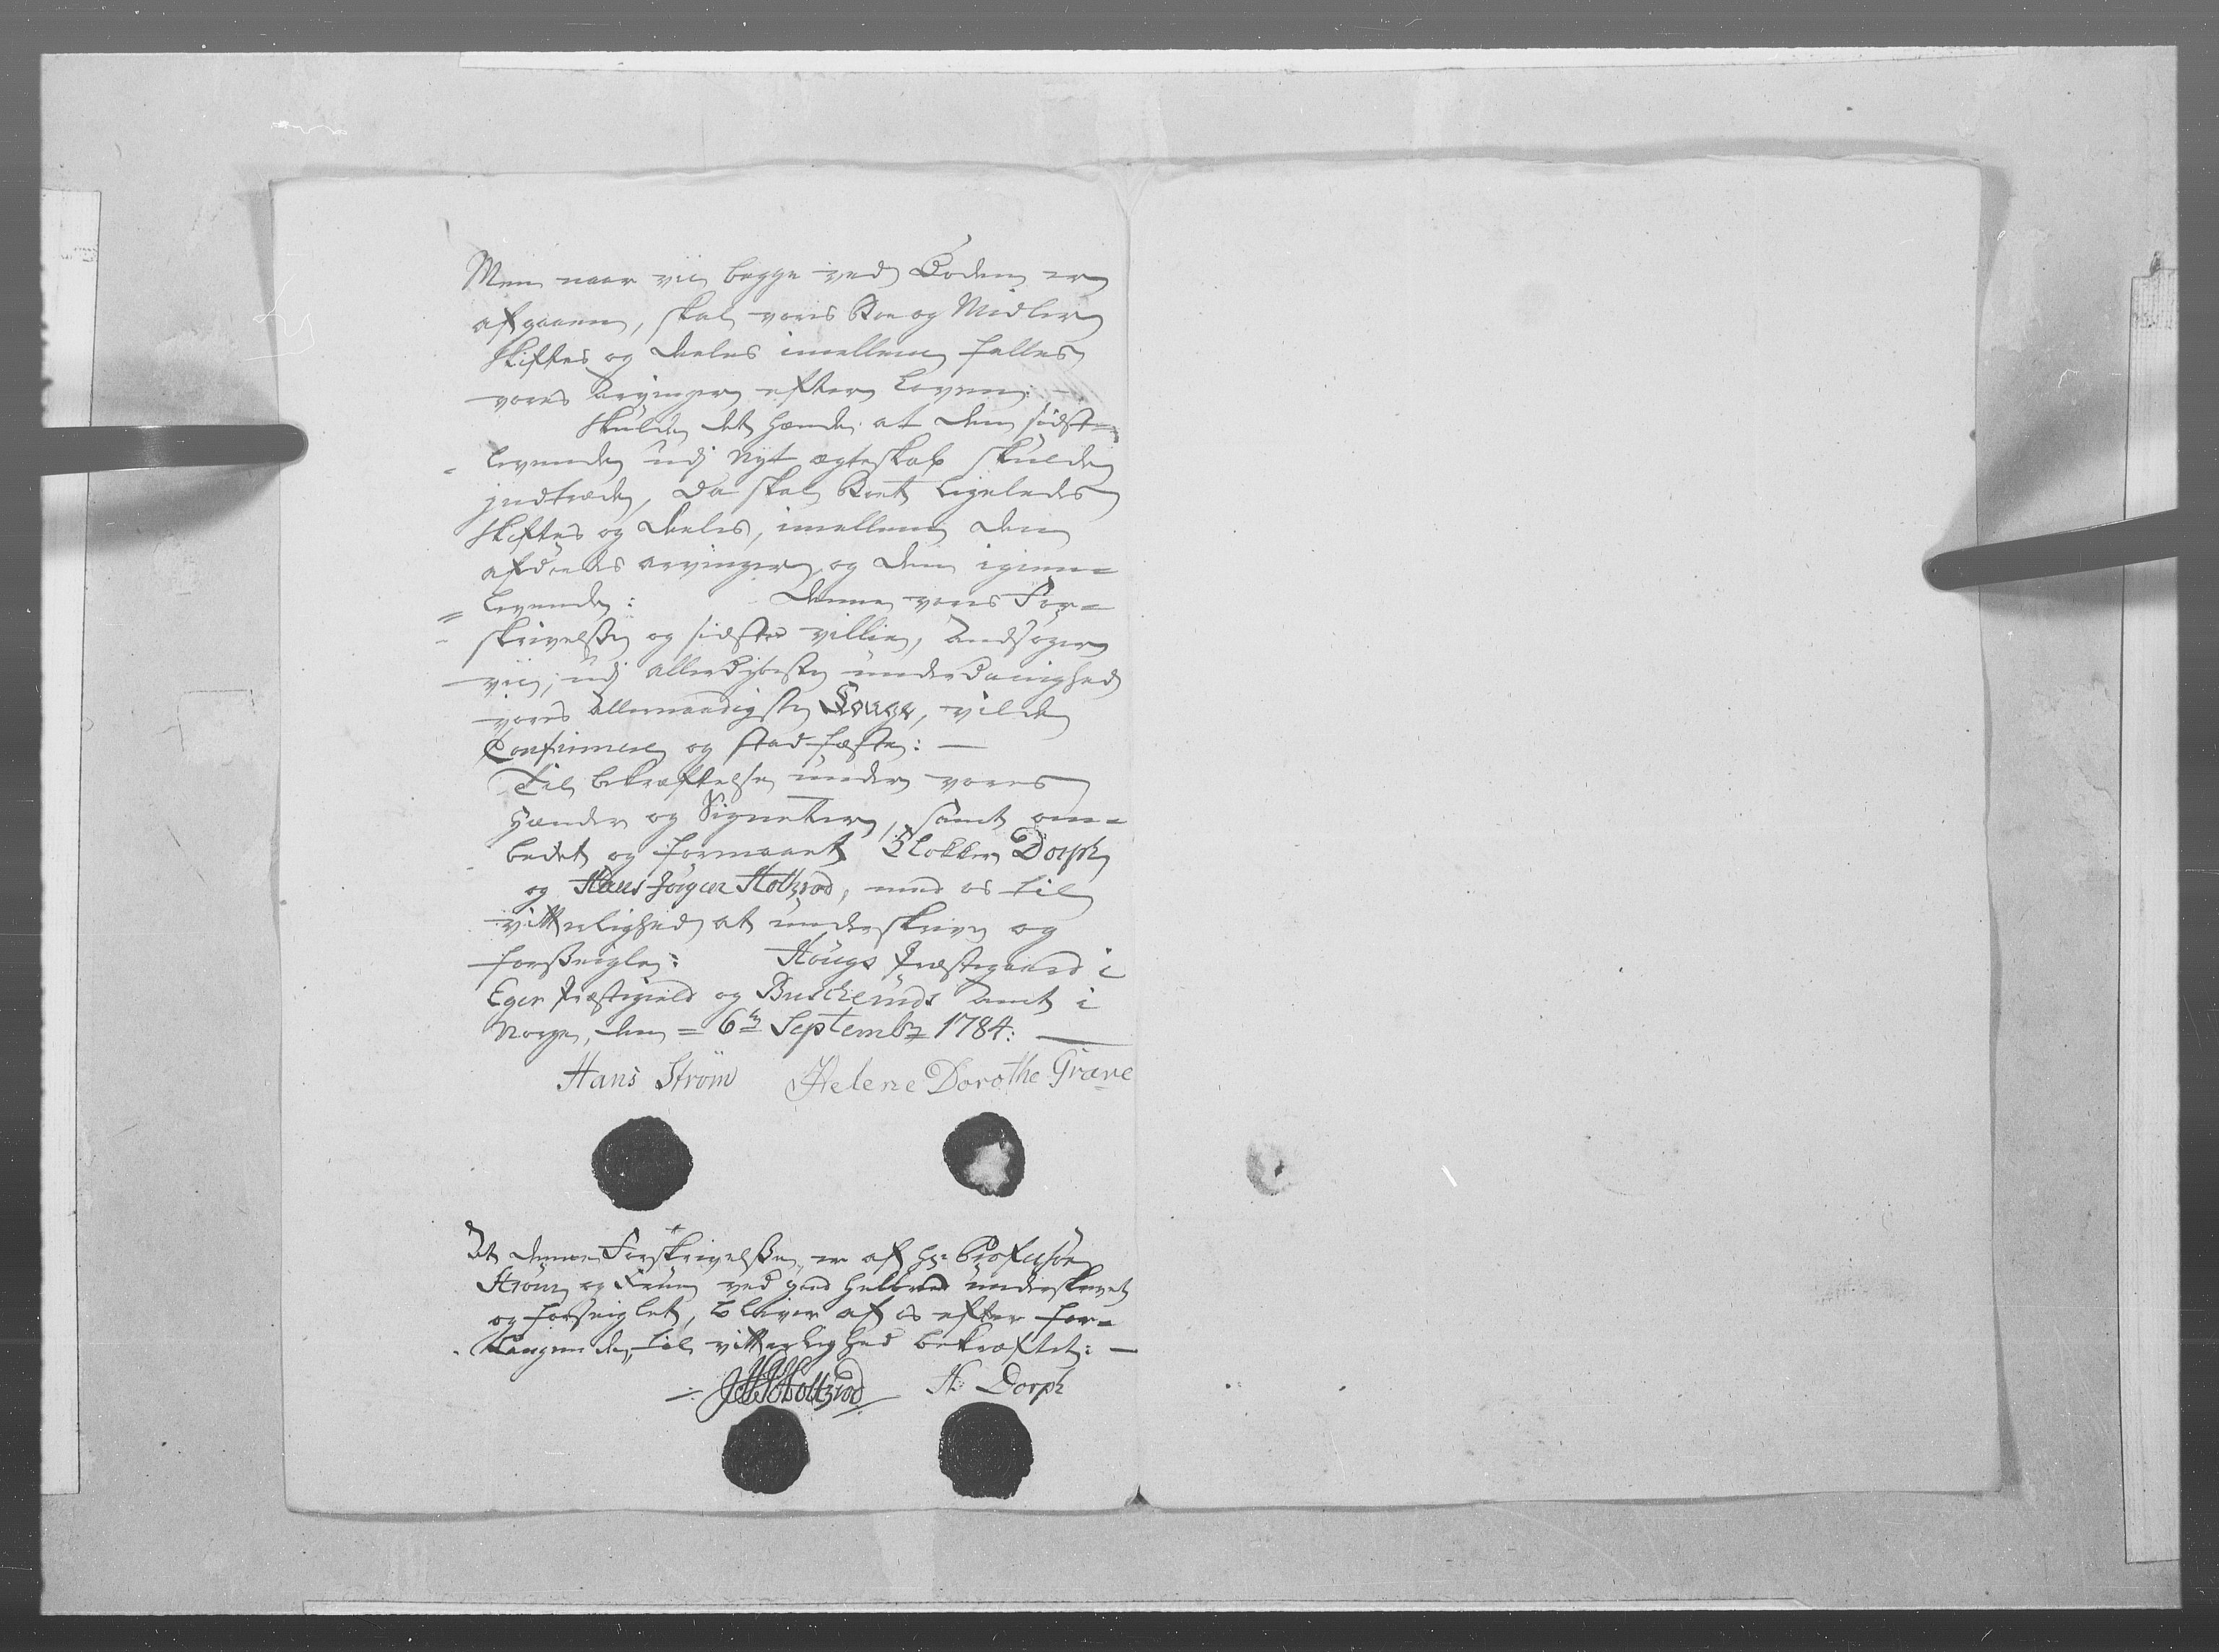 Men naar vii begge ved Døden er
afgaaen, skal voris Boe og Midler
skiftes og deeles imellem falles
vores Arvinger efter Loven: —
Skulde det hænde at den sidst-
levende udj Nyt ægteskab skulde
jndtræde, da skal Boet ligeleedes
skiftes og deeles, imellem den
afdøedes arvinger og den igien=
levende: Denne vores For=
skrivelsse og sidste villie, Andsøger
vii, udj allerdybeste underdanighed
vores allernaadigste Konge, vilde
Confirmere og stadfæste: —
Til bekræftelse under vores
Hænder og Signeter, samt om=
bedet og formaaet Klokker Dorph
og Hans Jörgen Holtzrod, med os til
vitterlighed at underskrive og
forsseigle: Hougs Præstegaard i
Eger Præstegield og Buscheruds Amt i
Norge, den = 6te Septembr 1784: —
Hans Strøm Helene Dorothe Græve
At denne Forskrivelsse er af Hr: Professor
Strøm og Frue ved god Helbred underskrevet
og forseiglet, bliver af os efter for=
langende til vitterlighed bekræftet: —
Holtzrod A: Dorph